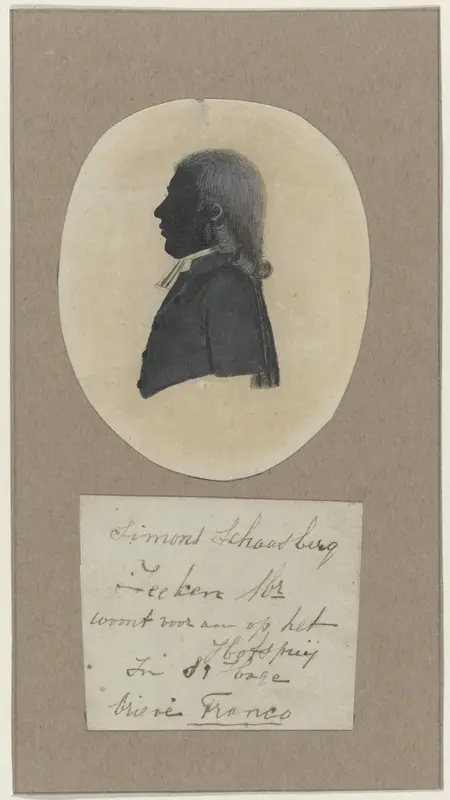 Simons Schaasberg
Teeken Mr
woont voor aan op het
Hofspuij
In S' Hage
brieve Franco